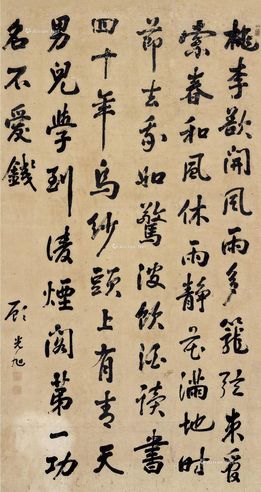 桃李欲開風雨多籠弦來愛
索春和風休雨靜花滿地時
節去我如驚波飲酒讀書
四十年烏紗頭上有青天
男兒學到凌煙閣第一功
名不愛錢
顧光旭